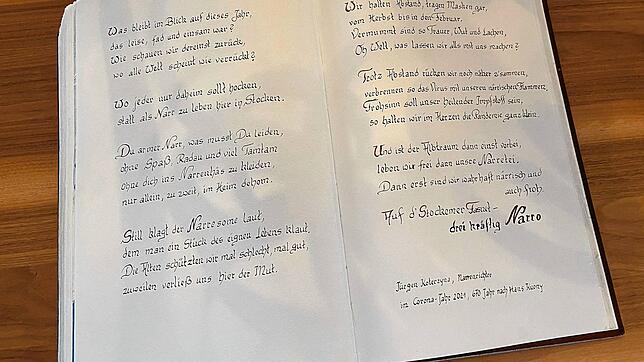 Was bleibt im Blick auf dieses Jahr,
das leise, fad und einsam war?
Wie schauen wir dereinst zurück,
wo alle Welt scheint wie verrückt?
Wo jeder nur daheim sollt hocken,
statt als Narr zu leben hier in Stocken.
Du armer Narr, was musst Du leiden,
ohne Spaß, Radau und viel Tamtam
ohne dich ins Narrenhäs zu kleiden,
nur allein, zu zweit, im Heim dehom.
Still klagt der Narrosome laut,
dem man ein Stück des eignen Lebens klaut,
Die Alten schützten wir mal schlecht, mal gut,
zuweilen verließ uns hier der Mut.
Wir halten Abstand, tragen Masken gar,
vom Herbst bis in den Februar.
Vermummt sind so Trauer, Wut und Lachen,
Oh Welt, was lassen wir als mit uns machen?
Trotz Abstand rücken wir noch näher z'sammen,
verbrennen so das Virus mit unseren närrischen Flammen,
Frohsinn soll unser heilender Impfstoff sein,
so halten wir im Herzen die Pandemie ganz klein.
Und ist der Albtraum dann einst vorbei,
leben wir frei dann unsre Narretei.
Dann erst sind wir wahrhaft närrisch und
auch froh.
Auf d'Stockemer Fasnet –
drei kräftig Narro
Jürgen Koterzyna, Narrenrichter
im Corona-Jahr 2021, 670 Jahr nach Hans Kuony